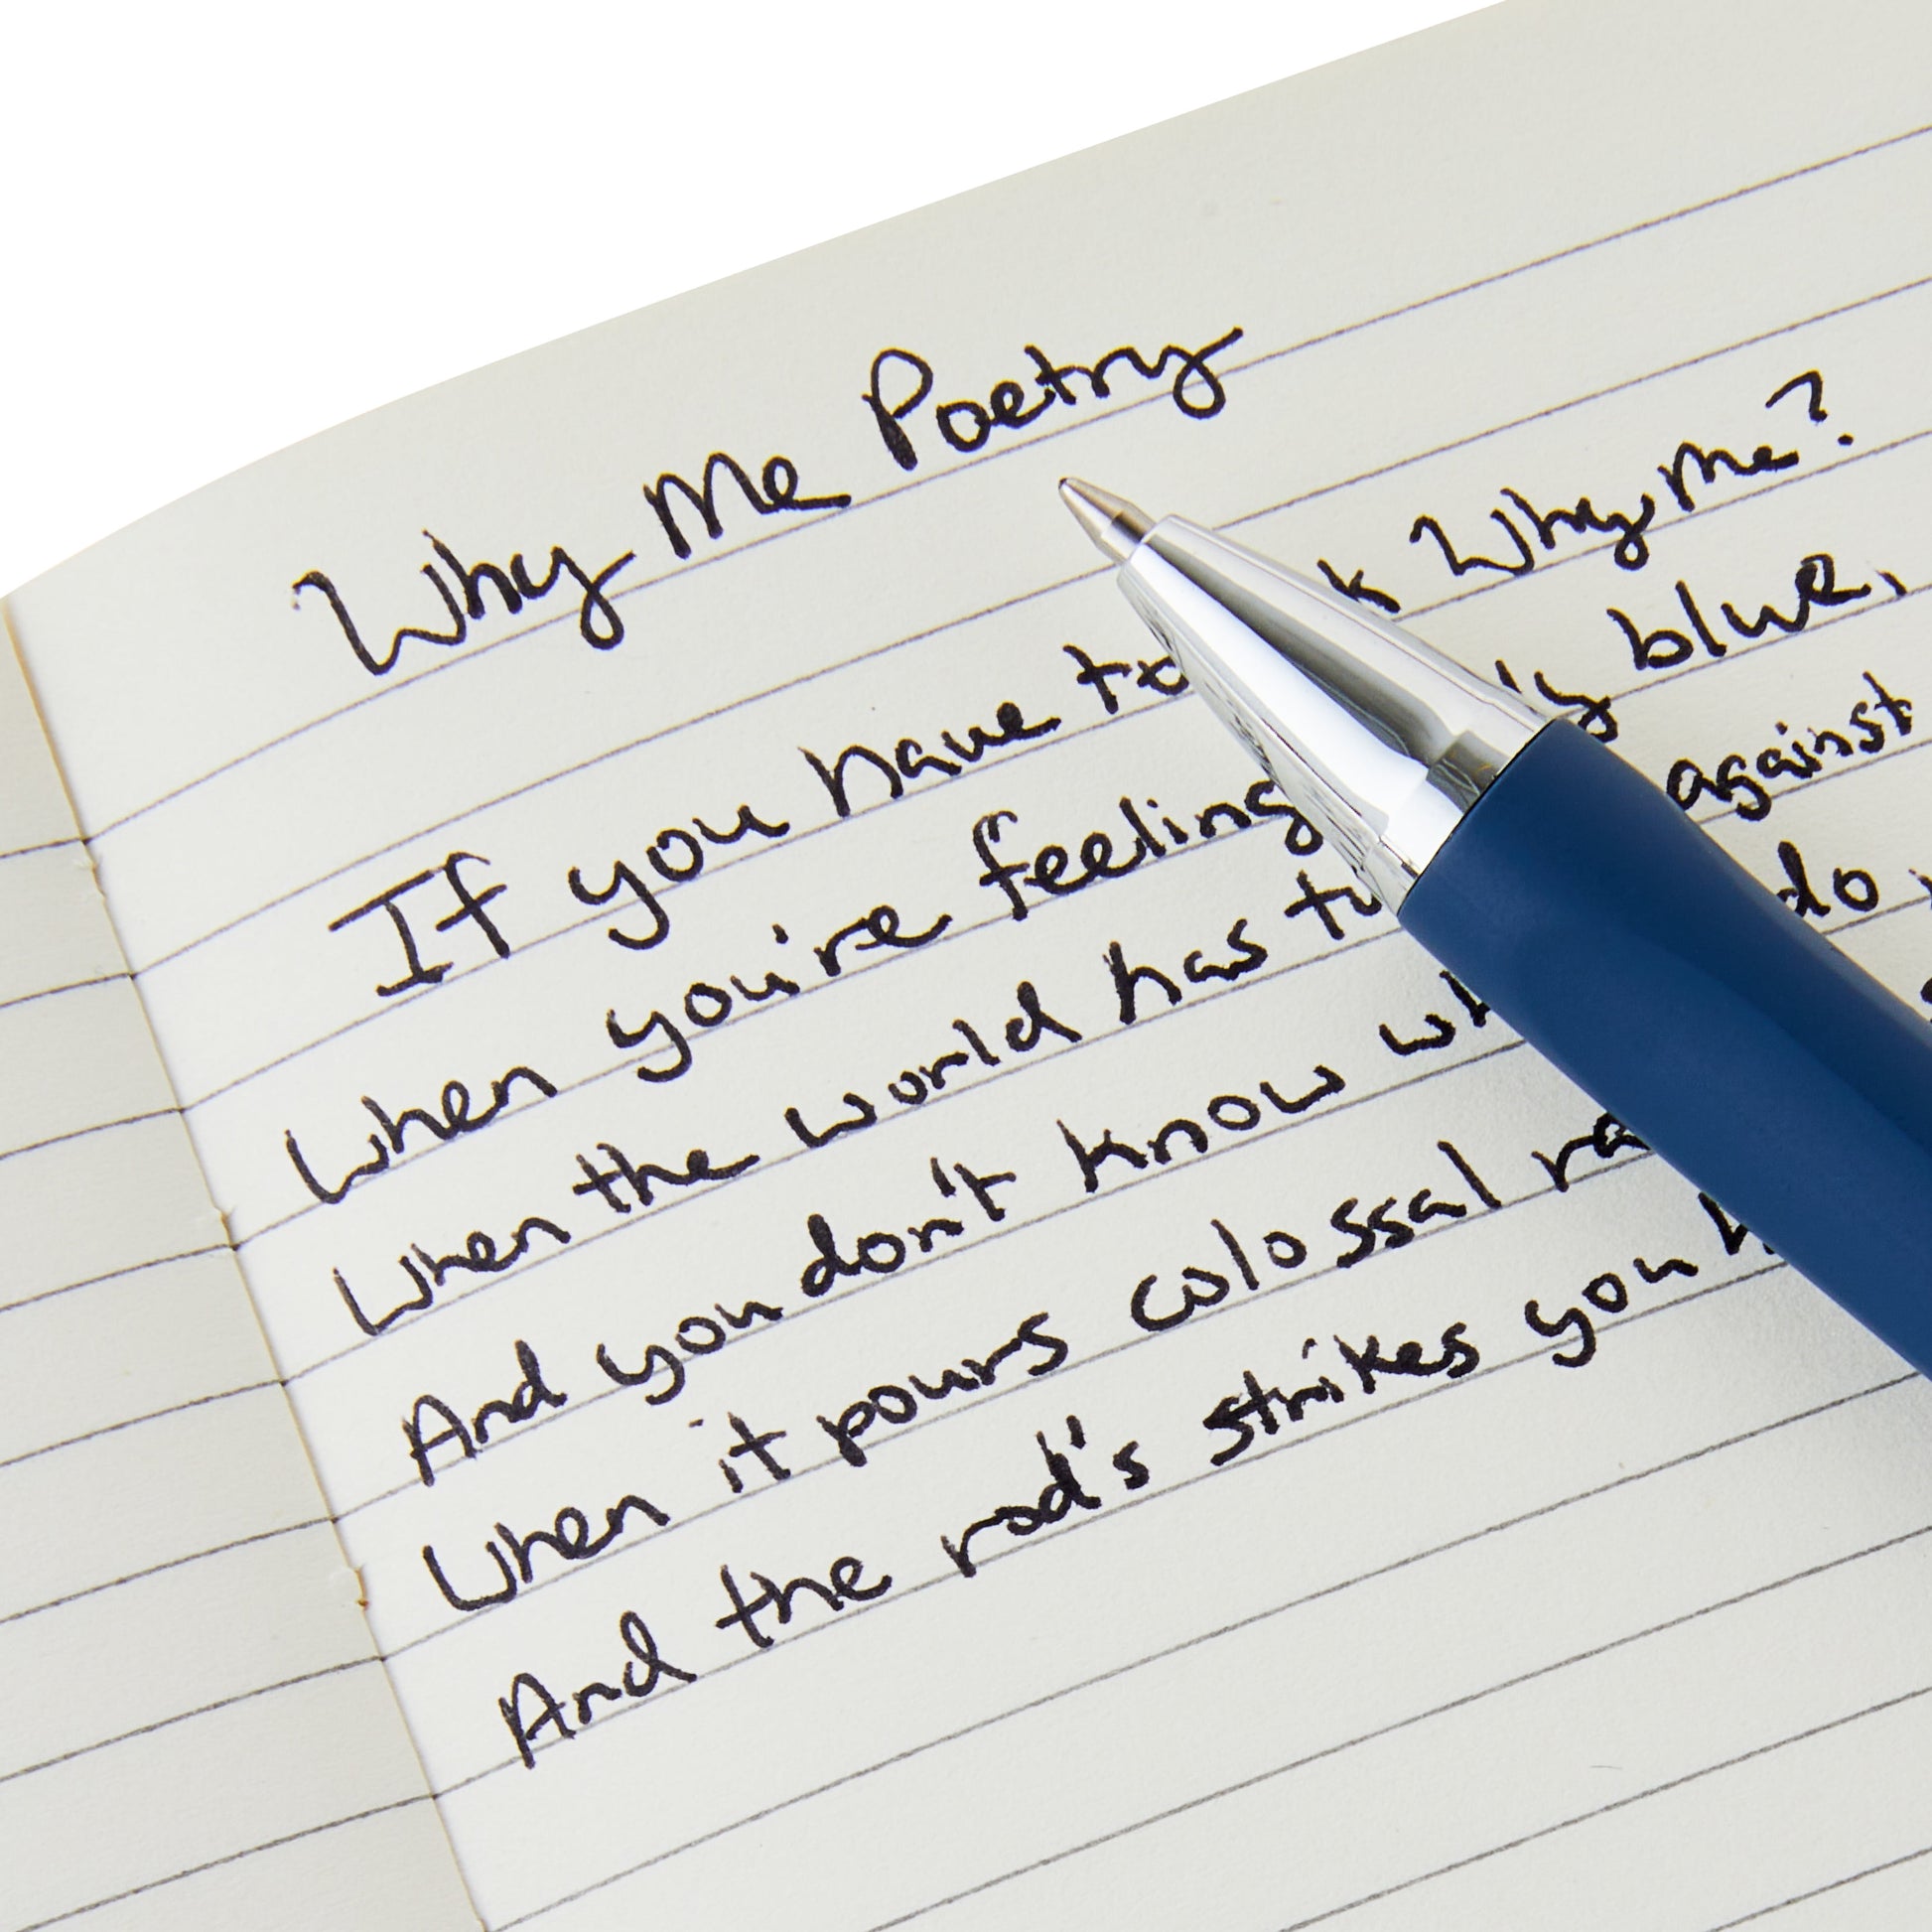 Why Me Poetry
If you have to Why me?
When you're feeling blue,
When the world has against
And you don't know do
When it pours colossal
And the rod's strikes you